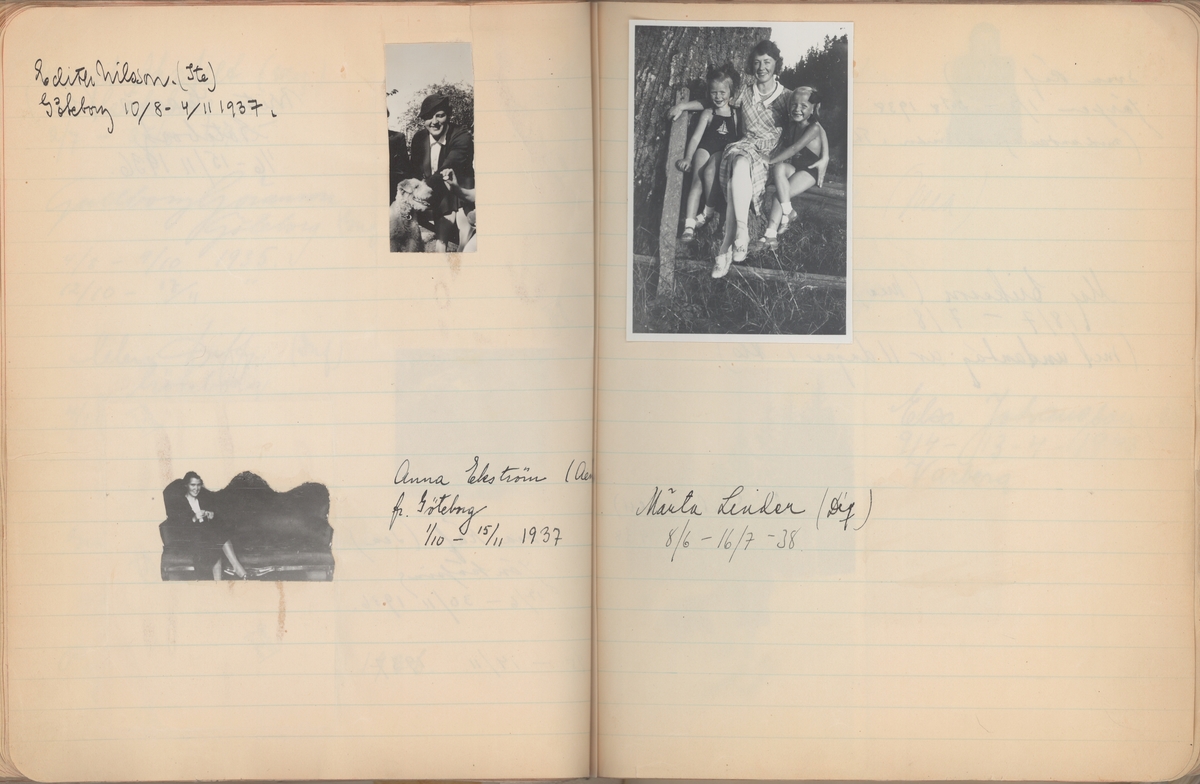 Edith Nilsson. (Ste)
Göteborg 10/8 - 4/11 1937.
Anna Ekström (Aen
fr. Göteborg
1/10 - 15/11 1937
Märta Linder (Dig)
8/6 - 16/7 - 38